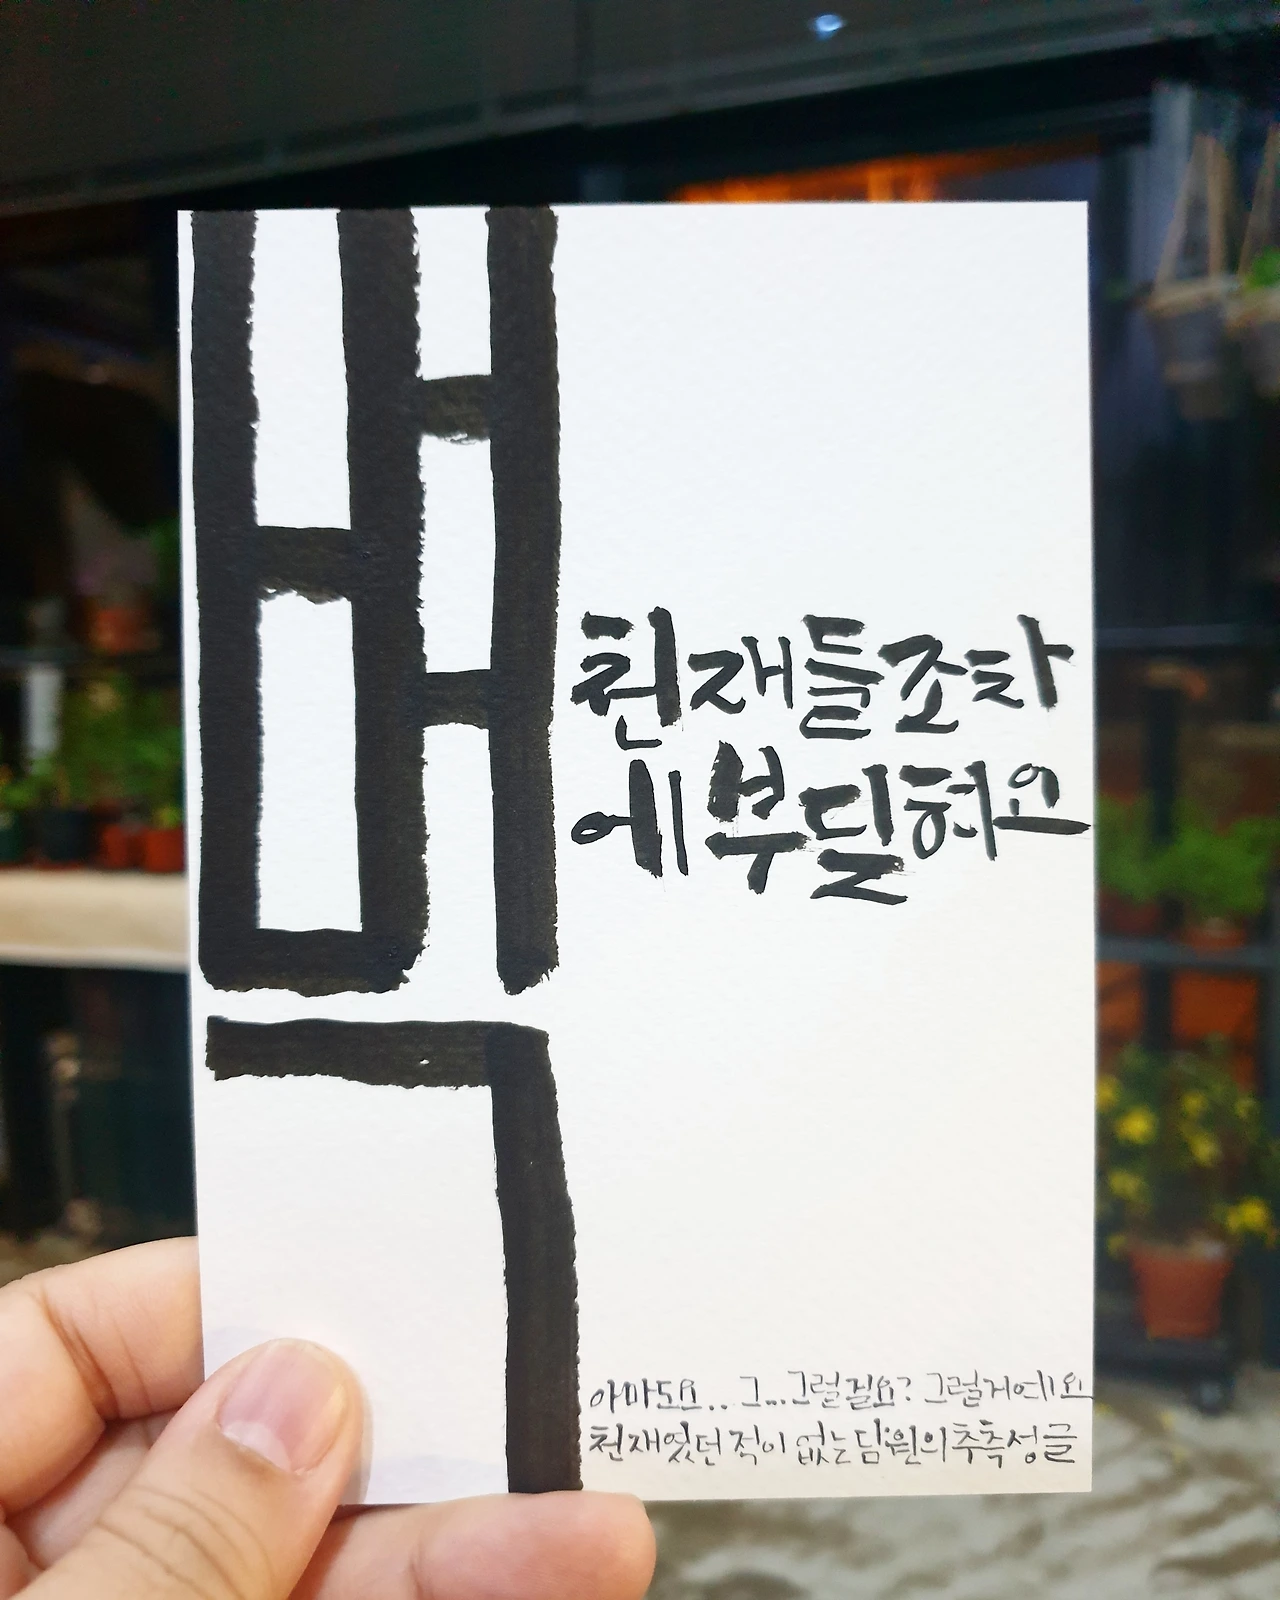 벽
천재들조차
에 부딪혀요
아마도요.. 그...그럴걸요? 그럴거에요
천재였던 적이 없는 담원의 추측성 글